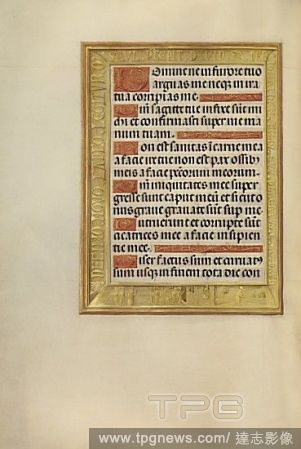 Domine ne in furore tuo
arguas me neq; in ira
tua corripias me.
Qm̄ sagitte tue infixe sūt mi
chi et confirmasti super me ma
num tuam.
Non est sanitas ī carne mea
a facie ire tue non est pax ossib;
meis a facie pctōrum meorum.
Qm̄ iniquitates mee super
gresse sunt caput meū et sicut o
nus graue grauate sūt sup me
Putruerunt et corrupte sūt
cicatrices mee a facie insipien
tie mee.
Miser factus sum et curuat;
sum usq; in finem tota die con
TPG
www.tpgnews.com/ 達志影像